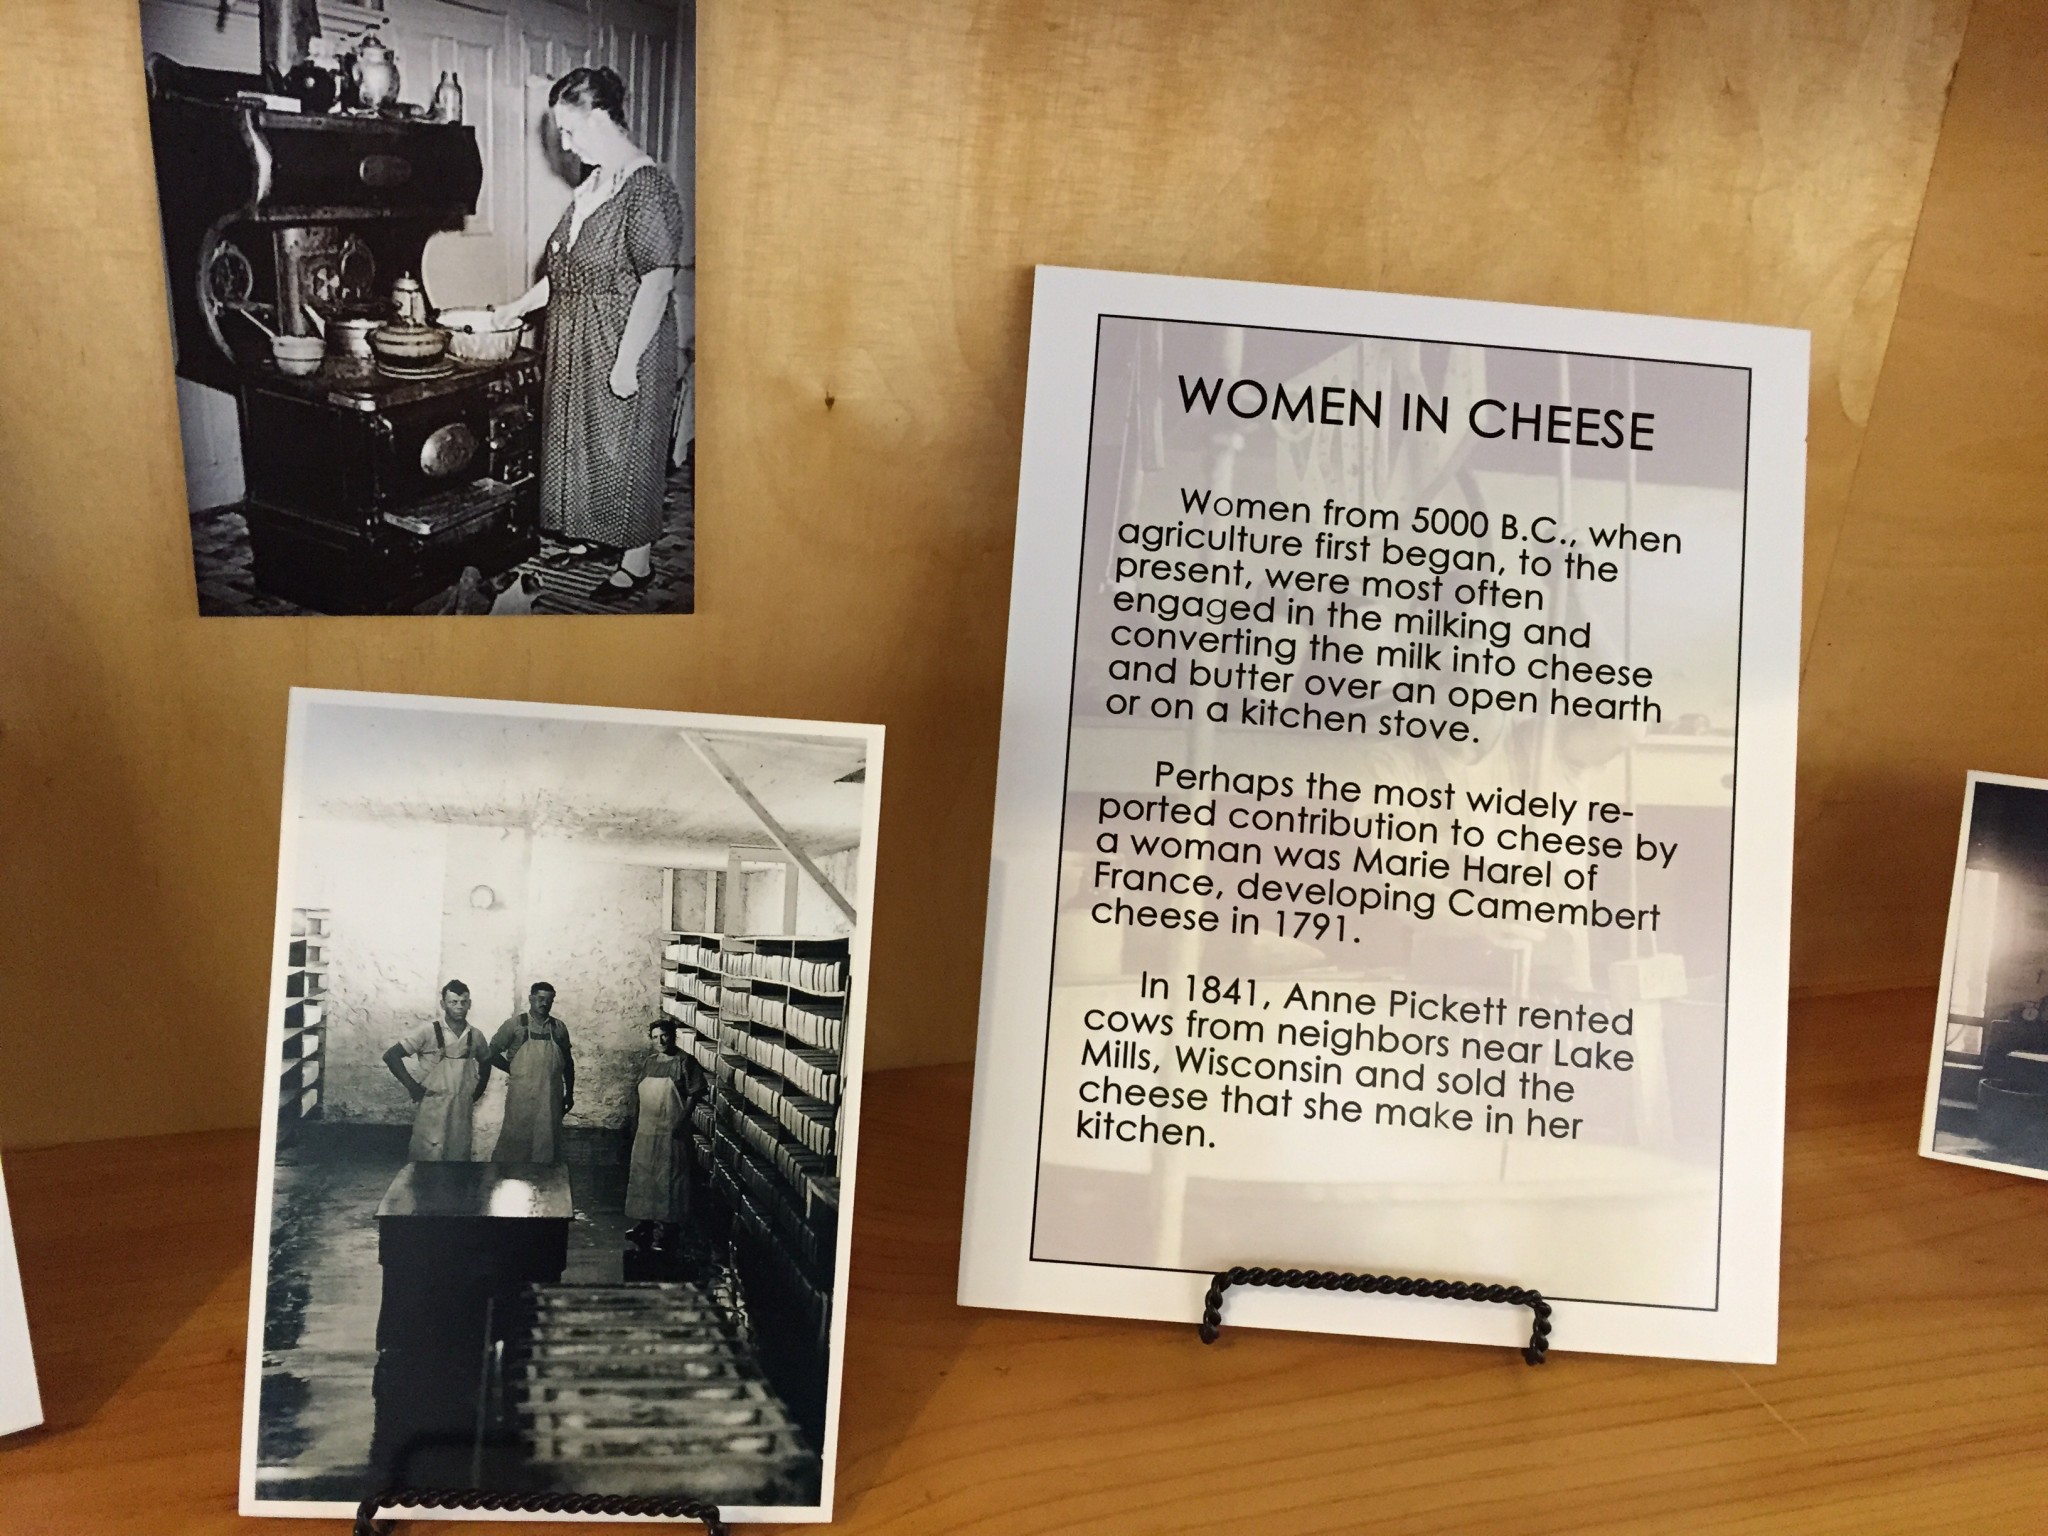 WOMEN IN CHEESE
Women from 5000 B.C., when
agriculture first began, to the
present, were most often
engaged in the milking and
converting the milk into cheese
and butter over an open hearth
or on a kitchen stove.
Perhaps the most widely re-
ported contribution to cheese by
a woman was Marie Harel of
France, developing Camembert
cheese in 1791.
In 1841, Anne Pickett rented
cows from neighbors near Lake
Mills, Wisconsin and sold the
cheese that she make in her
kitchen.